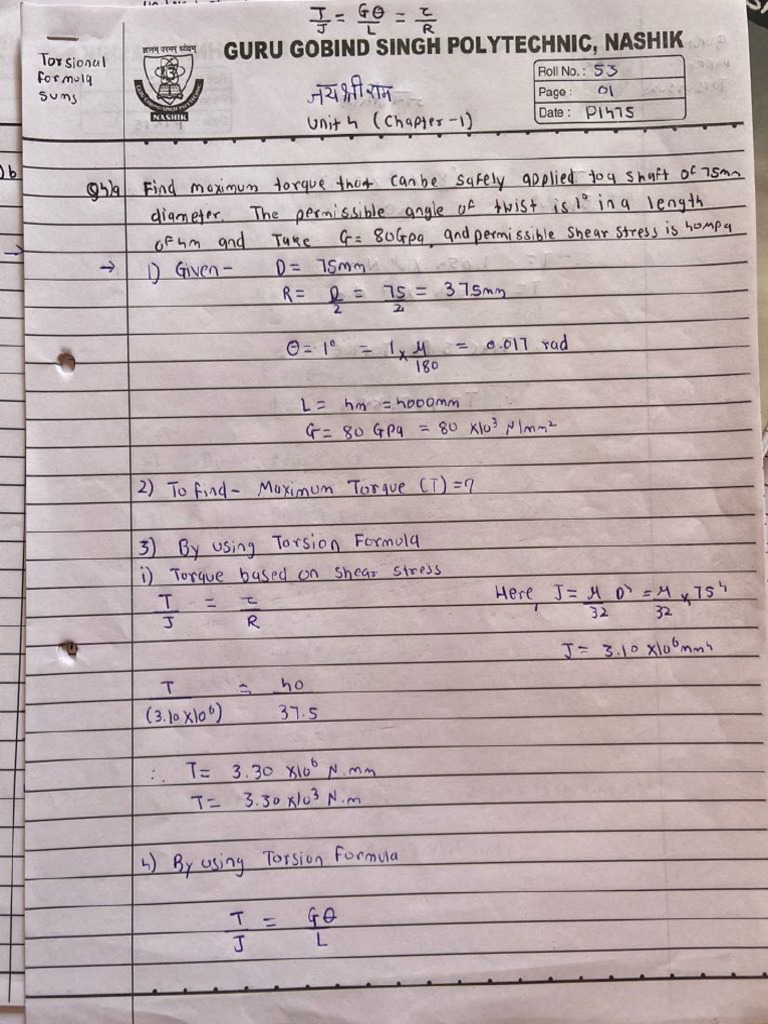 T/J = Gθ/L = τ/R
Torsional
Formula
Sums
ज्ञानम् परमम् ध्येयम्
GURU GOBIND SINGH POLYTECHNIC
NASHIK
GURU GOBIND SINGH POLYTECHNIC, NASHIK
जय श्री राम
Unit 4 (Chapter-1)
Roll No.: 53
Page: 01
Date: P1475
Q4)a Find maximum torque that can be safely applied to a shaft of 75mm
diameter. The permissible angle of twist is 1° in a length
of 4m and Take G = 80GPa, and permissible shear stress is 40MPa
→ 1) Given- D = 75mm
R = D/2 = 75/2 = 375mm
θ = 1° = 1 × π/180 = 0.017 rad
L = 4m = 4000mm
G = 80 GPa = 80 ×10³ N/mm²
2) To find- Maximum Torque (T) = ?
3) By using Torsion Formula
i) Torque based on shear stress
T/J = τ/R
Here, J = π/32 D⁴ = π/32 × 75⁴
J = 3.10 ×10⁶ mm⁴
T/(3.10 ×10⁶) = 40/37.5
∴ T = 3.30 ×10⁶ N.mm
T = 3.30 ×10³ N.m
4) By using Torsion Formula
T/J = Gθ/L